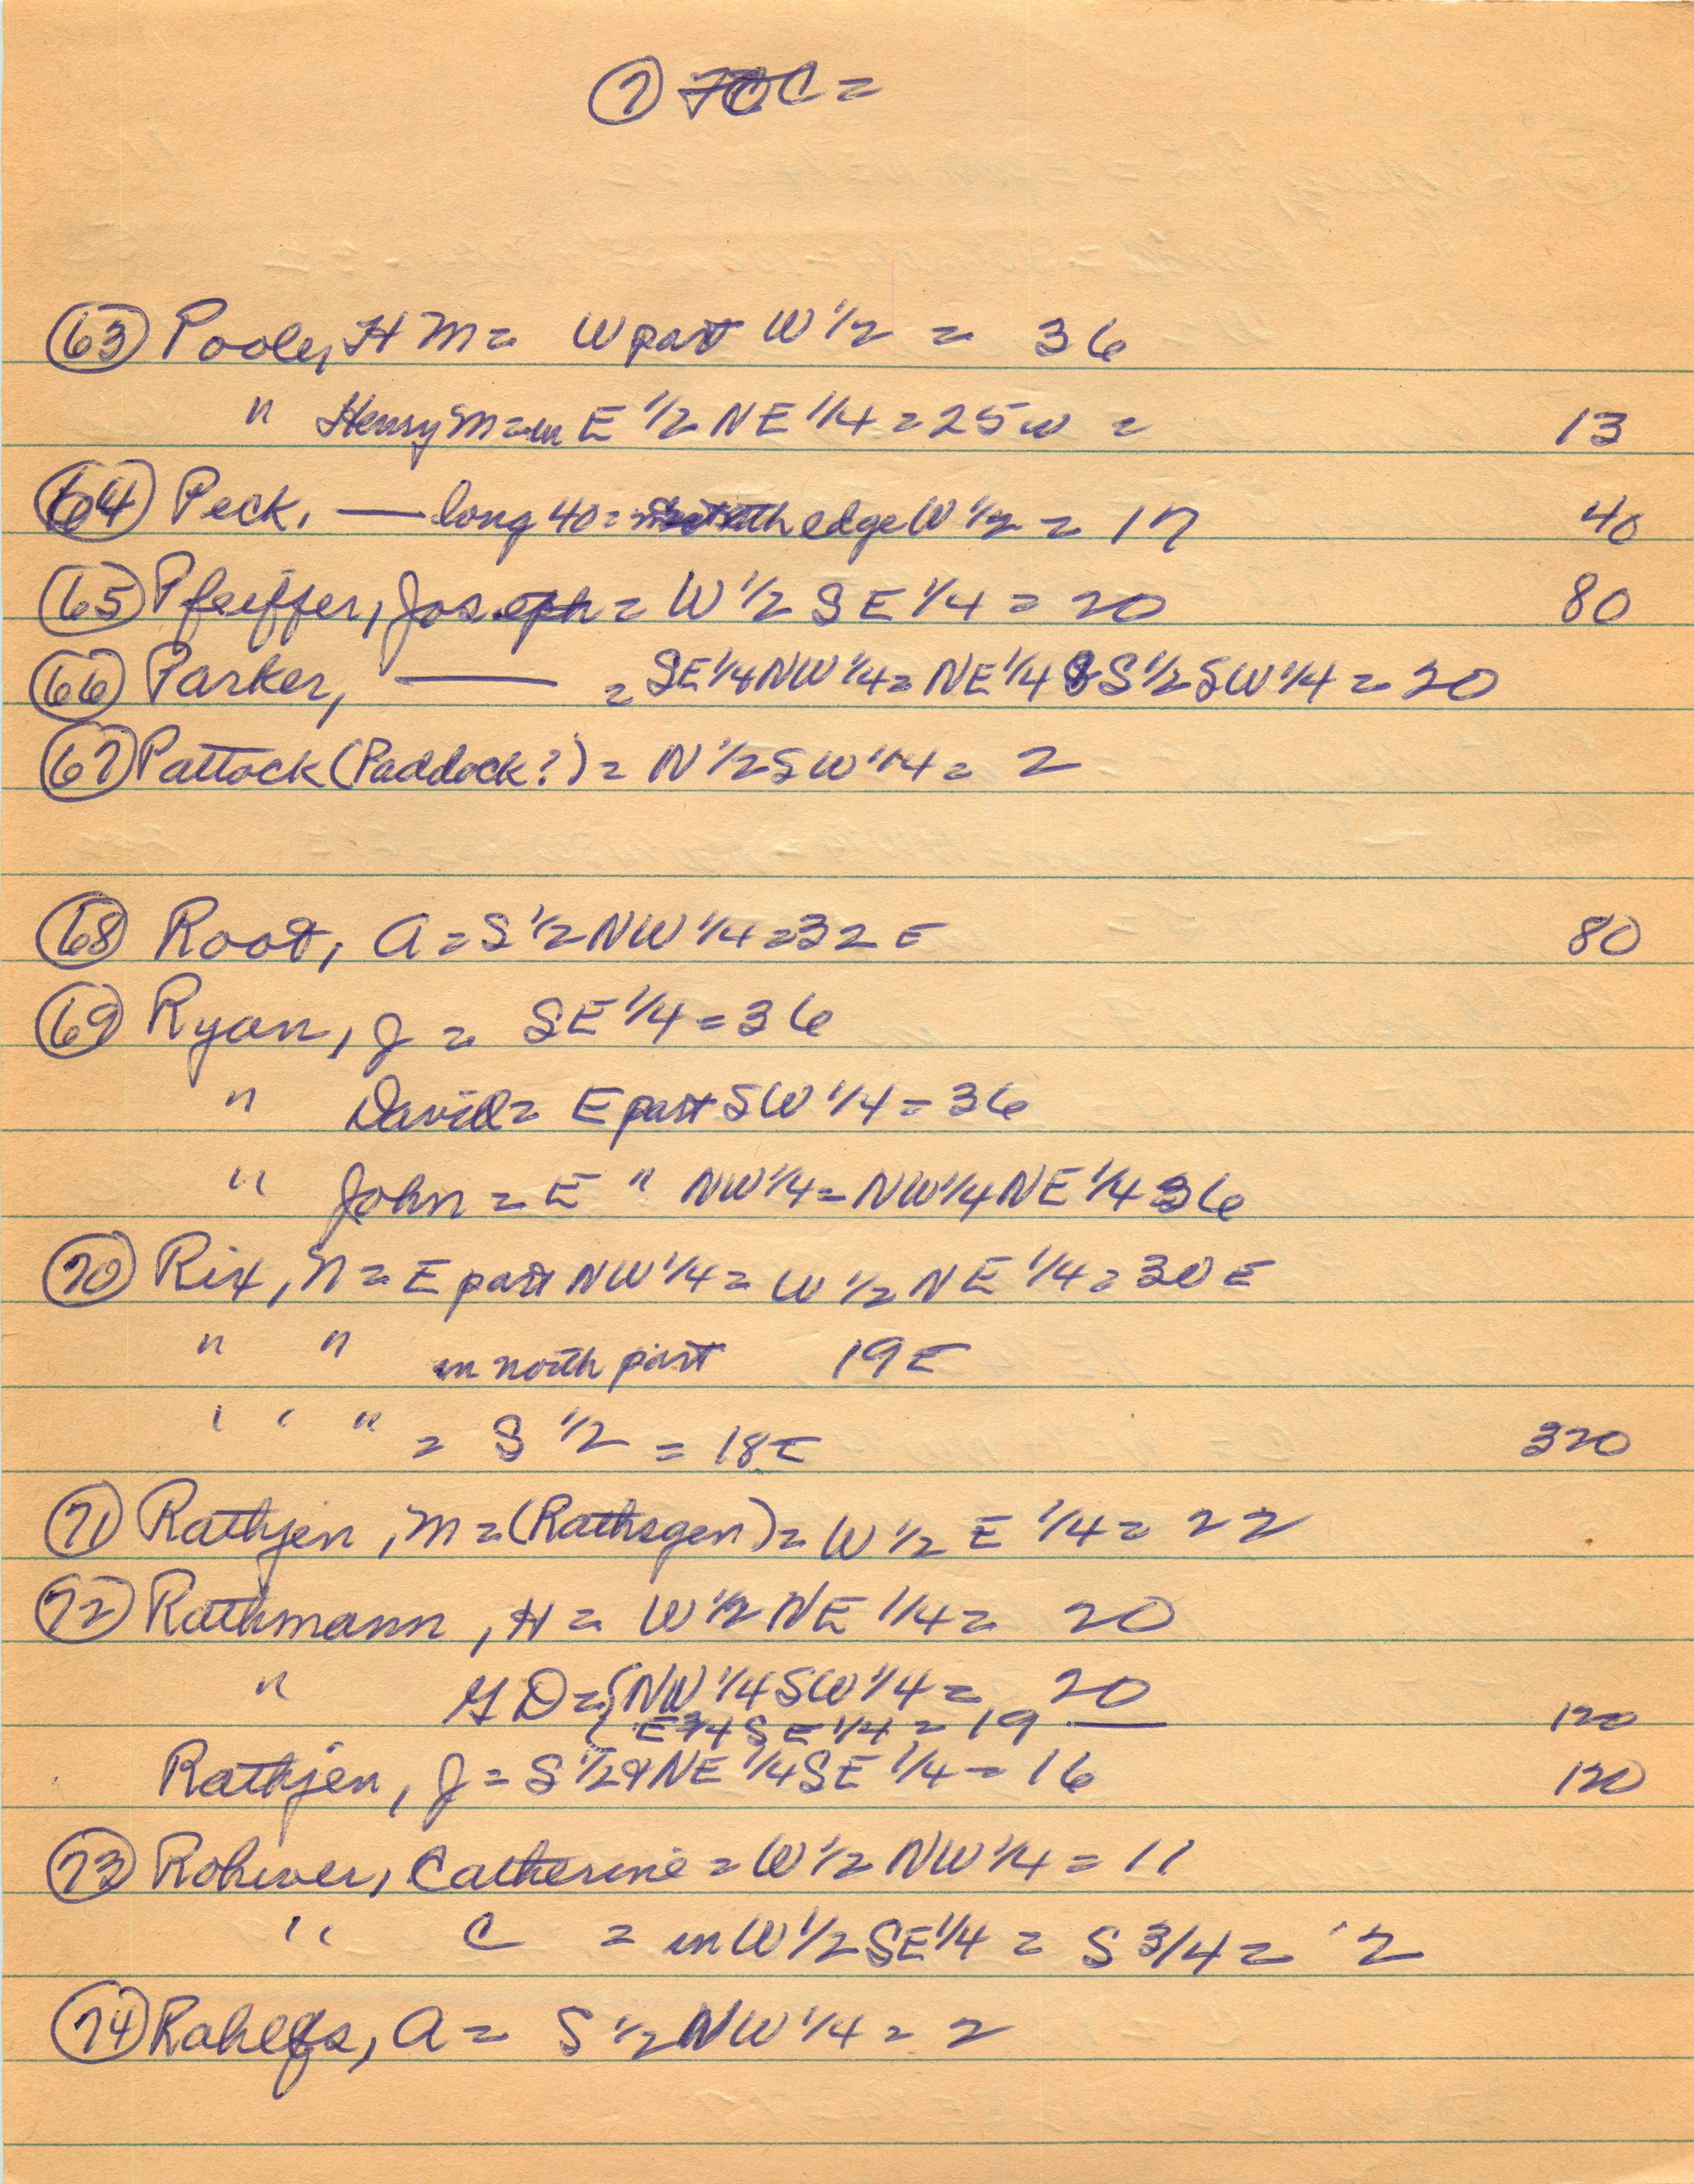 ⑦ FOC =
63 Poole, H M = W part W 1/2 = 36
" Henry M = in E 1/2 NE 1/4 = 25 W = 13
64 Peck, — long 40 = edge W 1/2 = 17 40
65 Pfeiffer, Joseph = W 1/2 SE 1/4 = 20 80
66 Parker, — = SE 1/4 NW 1/4 = NE 1/4 & S 1/2 SW 1/4 = 20
67 Pattock (Paddock?) = N 1/2 SW 1/4 = 2
68 Root, A = S 1/2 NW 1/4 = 32 E 80
69 Ryan, J = SE 1/4 = 36
" David = E part SW 1/4 = 36
" John = E " NW 1/4 = NW 1/4 NE 1/4 36
70 Rix, N = E part NW 1/4 = W 1/2 NE 1/4 = 30 E
" " in north part 19 E
" " " = S 1/2 = 18 E 320
71 Rathjen, M = (Rathsgen) = W 1/2 E 1/4 = 22
72 Rathmann, H = W 1/2 NE 1/4 = 20
" G D = { NW 1/4 SW 1/4 = 20
{ E 3/4 SE 1/4 = 19 — 120
Rathjen, J = S 1/2 & NE 1/4 SE 1/4 = 16 120
73 Rohwer, Catherine = W 1/2 NW 1/4 = 11
" C = in W 1/2 SE 1/4 = S 3/4 = 2
74 Rahlfs, A = S 1/2 NW 1/4 = 2